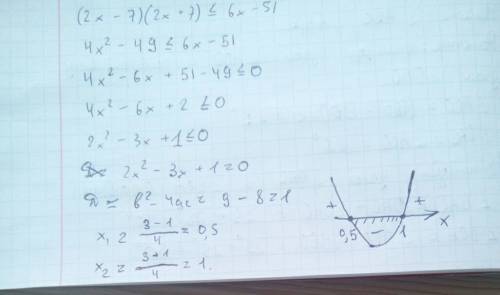 (2x - 7)(2x + 7) ≤ 6x - 51
4x² - 49 ≤ 6x - 51
4x² - 6x + 51 - 49 ≤ 0
4x² - 6x + 2 ≤ 0
2x² - 3x + 1 ≤ 0
2x² - 3x + 1 = 0
D = b² - 4ac = 9 - 8 = 1
x₁ = (3 - 1)/4 = 0,5
x₂ = (3 + 1)/4 = 1.
+ - +
0,5 1 x